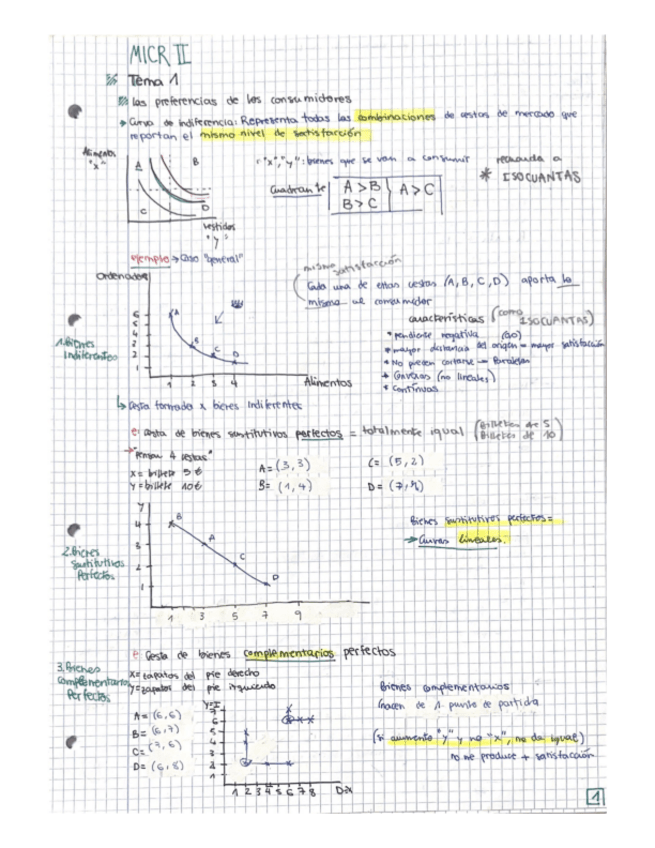 MICR II
Tema 1
Las preferencias de los consumidores
Curva de indiferencia: Representa todas las combinaciones de cestas de mercado que
reportan el mismo nivel de satisfacción
Alimentos
"x"
A
B
C
D
vestidos
"y"
"x","y": bienes que se van a consumir
Cuadrante
A > B
B > C
A > C
recuerda a
* ISOCUANTAS
ejemplo → Caso "general"
Ordenador
6
5
4
3
2
1
A
B
C
D
1 2 3 4
Alimentos
mismo satisfacción
Cada una de estas cestas (A, B, C, D) aporta lo
mismo al consumidor
características (como ISOCUANTAS)
* pendiente negativa
* mayor distancia del origen = mayor satisfacción
* No pueden cortarse → Paralelas
* Convexas (no lineales)
* Continuas
1. Bienes
Indiferentes
Cesta formada x bienes Indiferentes
cesta de bienes sustitutivos perfectos = totalmente igual (Billetes de 5
Billetes de 10)
4 cestas"
x = billete 5 €
y = billete 10 €
A = (3,3)
B = (1,4)
C = (5,2)
D =
Y
4
3
2
1
B
A
C
D
1 3 5 7 9
2. Bienes
Sustitutivos
Perfectos
Bienes sustitutivos perfectos =
→ Curvas lineales.
Cesta de bienes complementarios perfectos
X = zapatos del pie derecho
Y = zapatos del pie izquierdo
3. Bienes
Complementarios
Perfectos
A = (6,6)
B = (6,7)
C = (7,6)
D = (6,8)
6
5
4
3
2
1
1 2 3 4 5 6 7 8
Bienes complementarios
(nacen de 1 punto de partida
(si aumento "y" y no "x", me da igual)
no me produce + satisfacción
1